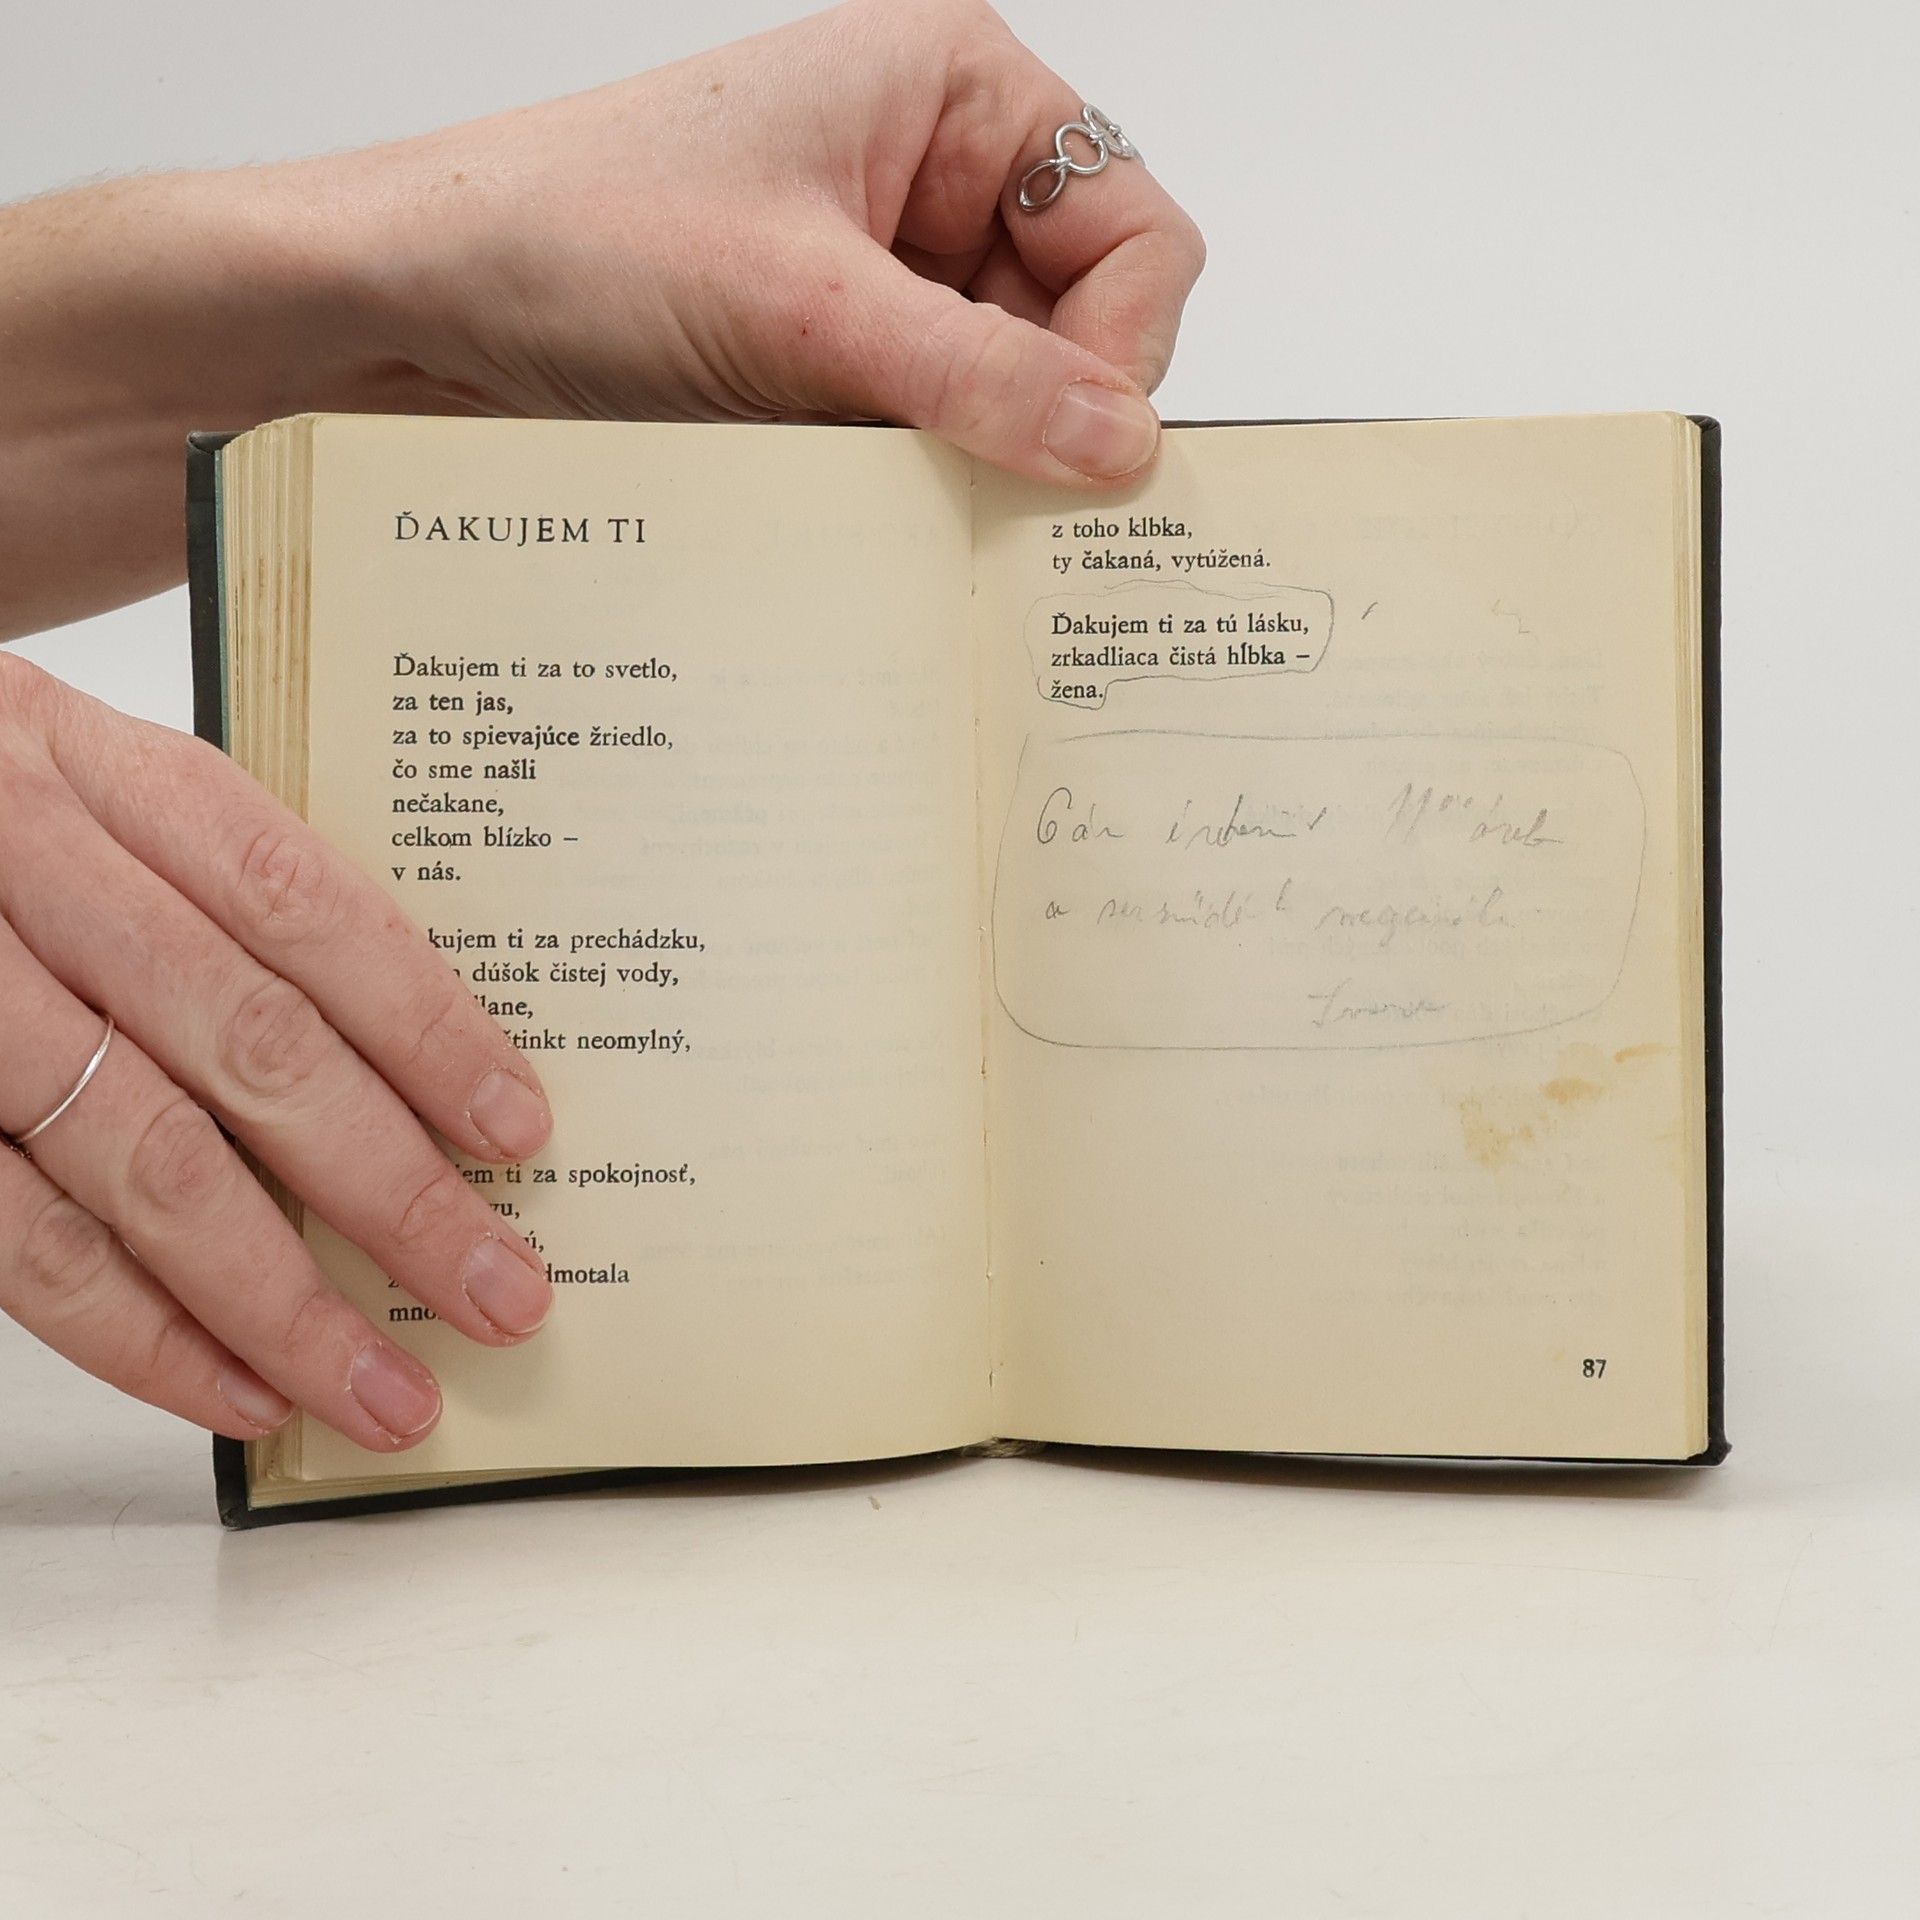 ĎAKUJEM TI
Ďakujem ti za to svetlo,
za ten jas,
za to spievajúce žriedlo,
čo sme našli
nečakane,
celkom blízko –
v nás.
kujem ti za prechádzku,
dúšok čistej vody,
lane,
tinkt neomylný,
em ti za spokojnosť,
vu,
ú,
dmotala
mno
z toho klbka,
ty čakaná, vytúžená.
Ďakujem ti za tú lásku,
zrkadliaca čistá hĺbka –
žena.
a
87